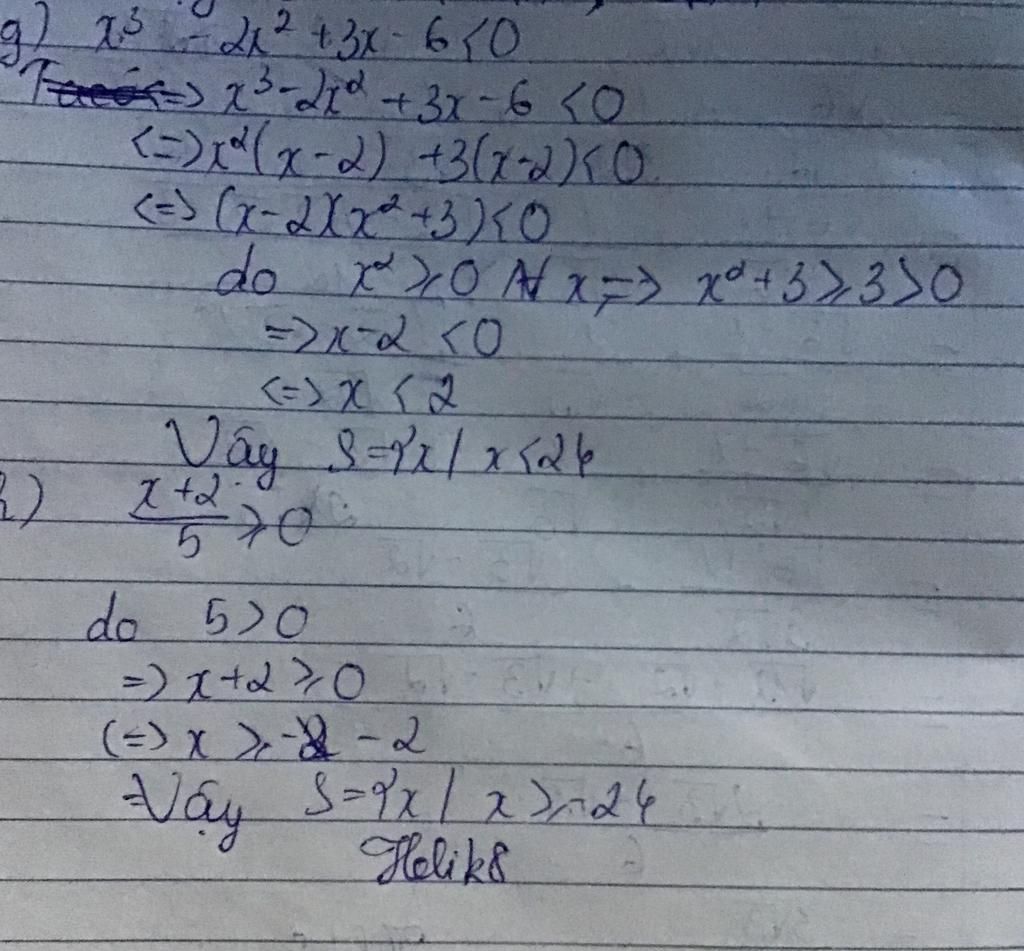 g) x³ - 2x² + 3x - 6 < 0
<=> x³ - 2x² + 3x - 6 < 0
<=> x²(x - 2) + 3(x - 2) < 0
<=> (x - 2)(x² + 3) < 0
do x² ≥ 0 ∀ x, => x² + 3 ≥ 3 > 0
=> x - 2 < 0
<=> x < 2
Vậy S = {x / x < 2}
h) (x + 2)/5 ≥ 0
do 5 > 0
=> x + 2 ≥ 0
<=> x ≥ - 2
Vậy S = {x / x ≥ -2}
Helik8